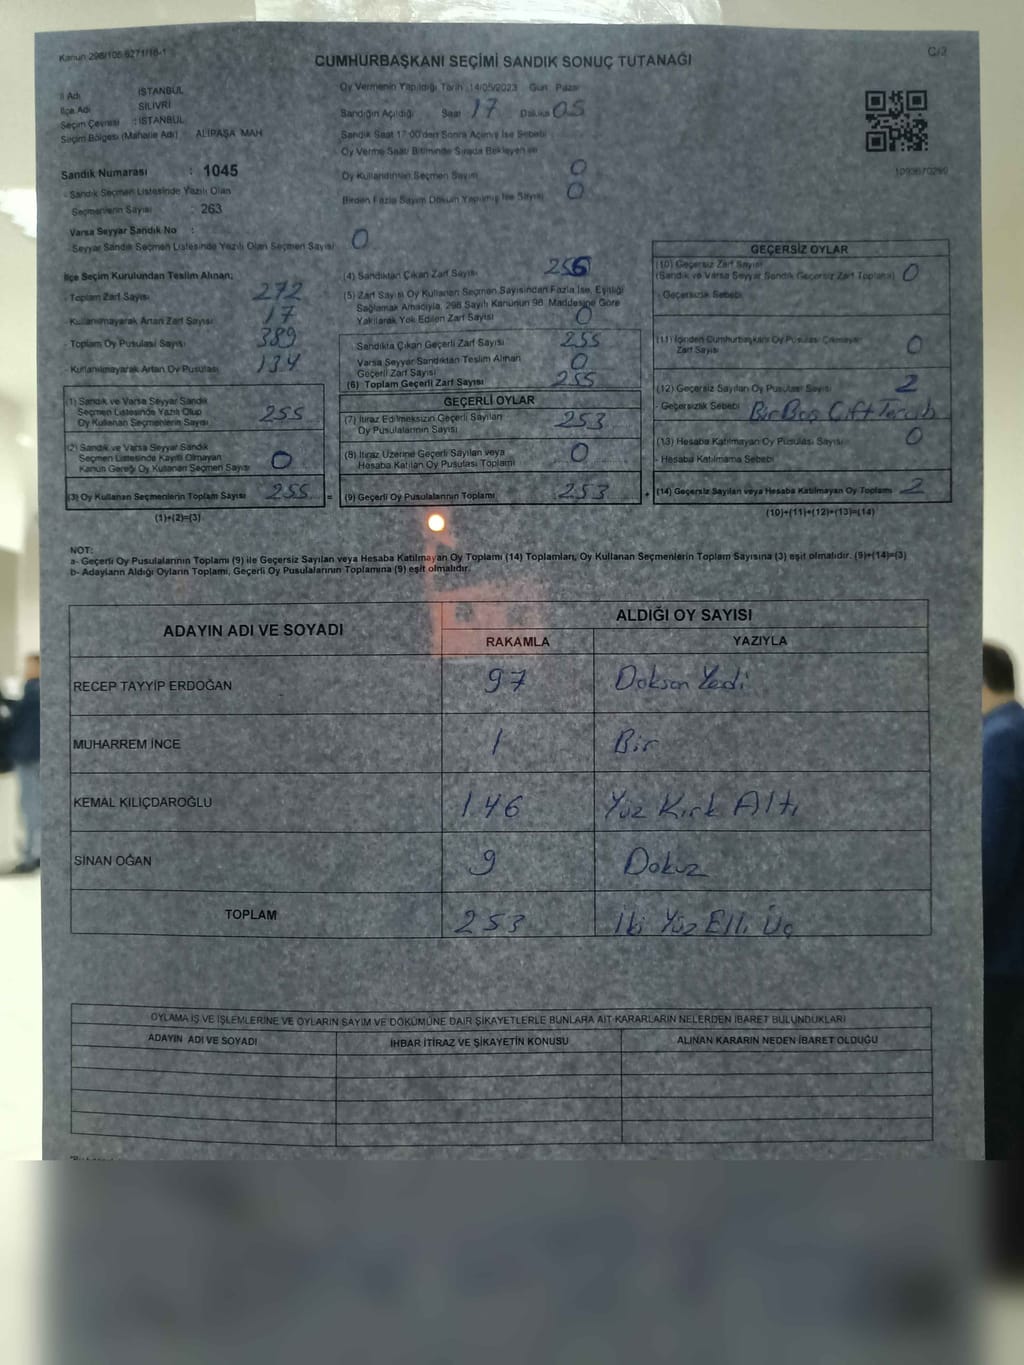 Kanun 298/105 6271/18-1
C/2
CUMHURBAŞKANI SEÇİMİ SANDIK SONUÇ TUTANAĞI
İl Adı İSTANBUL
İlçe Adı SİLİVRİ
Seçim Çevresi : İSTANBUL
Seçim Bölgesi (Mahalle Adı) ALİPAŞA MAH
Sandık Numarası : 1045
- Sandık Seçmen Listesinde Yazılı Olan
Seçmenlerin Sayısı : 263
Varsa Seyyar Sandık No :
- Seyyar Sandık Seçmen Listesinde Yazılı Olan Seçmen Sayısı 0
Oy Vermenin Yapıldığı Tarih :14/05/2023 Gün Pazar
Sandığın Açıldığı Saat 17 Dakika 05
Sandık Saat 17:00'den Sonra Açılmış İse Sebebi
Oy Verme Saati Bitiminde Sırada Bekleyen ve
Oy Kullandırılan Seçmen Sayısı 0
Birden Fazla Sayım Döküm Yapılmış İse Sayısı 0
1093670299
İlçe Seçim Kurulundan Teslim Alınan;
- Toplam Zarf Sayısı 272
- Kullanılmayarak Artan Zarf Sayısı 17
- Toplam Oy Pusulası Sayısı 389
- Kullanılmayarak Artan Oy Pusulası 134
(1) Sandık ve Varsa Seyyar Sandık
Seçmen Listesinde Yazılı Olup
Oy Kullanan Seçmenlerin Sayısı 255
(2) Sandık ve Varsa Seyyar Sandık
Seçmen Listesinde Kayıtlı Olmayan
Kanun Gereği Oy Kullanan Seçmen Sayısı 0
(3) Oy Kullanan Seçmenlerin Toplam Sayısı 255 =
(1)+(2)=(3)
(4) Sandıktan Çıkan Zarf Sayısı 256
(5) Zarf Sayısı Oy Kullanan Seçmen Sayısından Fazla İse, Eşitliği
Sağlamak Amacıyla, 298 Sayılı Kanunun 98. Maddesine Göre
Yakılarak Yok Edilen Zarf Sayısı 0
Sandıkta Çıkan Geçerli Zarf Sayısı 255
Varsa Seyyar Sandıktan Teslim Alınan
Geçerli Zarf Sayısı 0
(6) Toplam Geçerli Zarf Sayısı 255
GEÇERLİ OYLAR
(7) İtiraz Edilmeksizin Geçerli Sayılan
Oy Pusulalarının Sayısı 253
(8) İtiraz Üzerine Geçerli Sayılan veya
Hesaba Katılan Oy Pusulası Toplamı 0
(9) Geçerli Oy Pusulalarının Toplamı 253 +
GEÇERSİZ OYLAR
(10) Geçersiz Zarf Sayısı
(Sandık ve Varsa Seyyar Sandık Geçersiz Zarf Toplamı) 0
- Geçersizlik Sebebi
(11) İçinden Cumhurbaşkanı Oy Pusulası Çıkmayan
Zarf Sayısı 0
(12) Geçersiz Sayılan Oy Pusulası Sayısı 2
- Geçersizlik Sebebi Bir Boş Çift Tercih
(13) Hesaba Katılmayan Oy Pusulası Sayısı 0
- Hesaba Katılmama Sebebi
(14) Geçersiz Sayılan veya Hesaba Katılmayan Oy Toplamı 2
(10)+(11)+(12)+(13)=(14)
NOT:
a- Geçerli Oy Pusulalarının Toplamı (9) ile Geçersiz Sayılan veya Hesaba Katılmayan Oy Toplamı (14) Toplamları, Oy Kullanan Seçmenlerin Toplam Sayısına (3) eşit olmalıdır. (9)+(14)=(3)
b- Adayların Aldığı Oyların Toplamı, Geçerli Oy Pusulalarının Toplamına (9) eşit olmalıdır.
ADAYIN ADI VE SOYADI
ALDIĞI OY SAYISI
RAKAMLA YAZIYLA
RECEP TAYYİP ERDOĞAN 97 Doksan Yedi
MUHARREM İNCE 1 Bir
KEMAL KILIÇDAROĞLU 146 Yüz Kırk Altı
SİNAN OĞAN 9 Dokuz
TOPLAM 253 İki Yüz Elli Üç
OYLAMA İŞ VE İŞLEMLERİNE VE OYLARIN SAYIM VE DÖKÜMÜNE DAİR ŞİKAYETLERLE BUNLARA AİT KARARLARIN NELERDEN İBARET BULUNDUKLARI
ADAYIN ADI VE SOYADI İHBAR İTİRAZ VE ŞİKAYETİN KONUSU ALINAN KARARIN NEDEN İBARET OLDUĞU